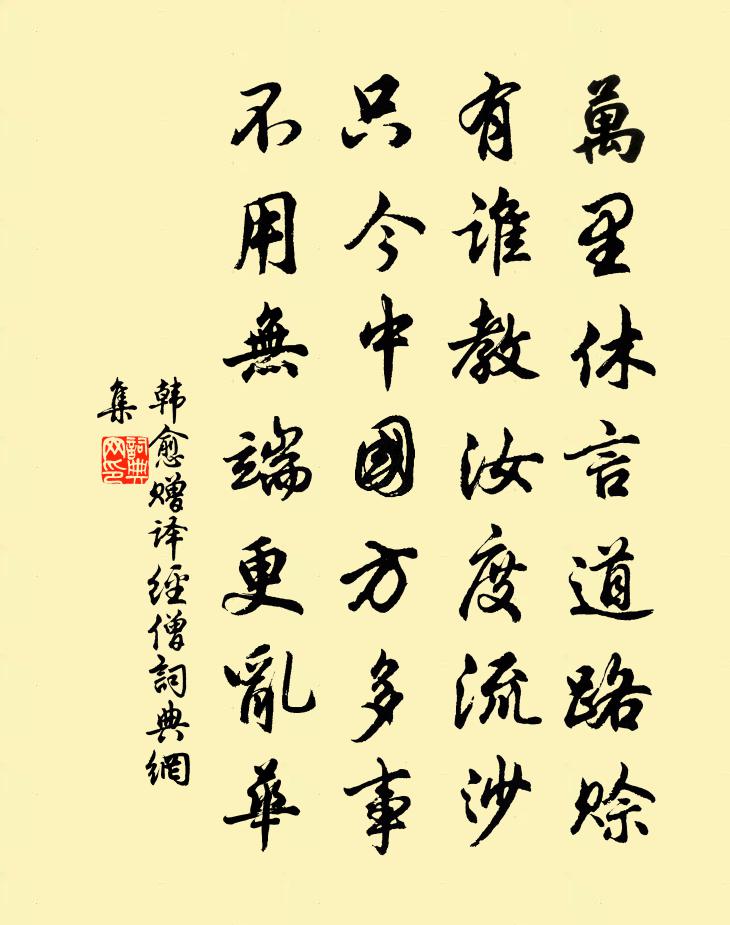 萬里休言道路賒
有誰教汝度流沙
只今中國方多事
不用無端更亂華
韩愈赠译經僧詞典網
集
詞典网印